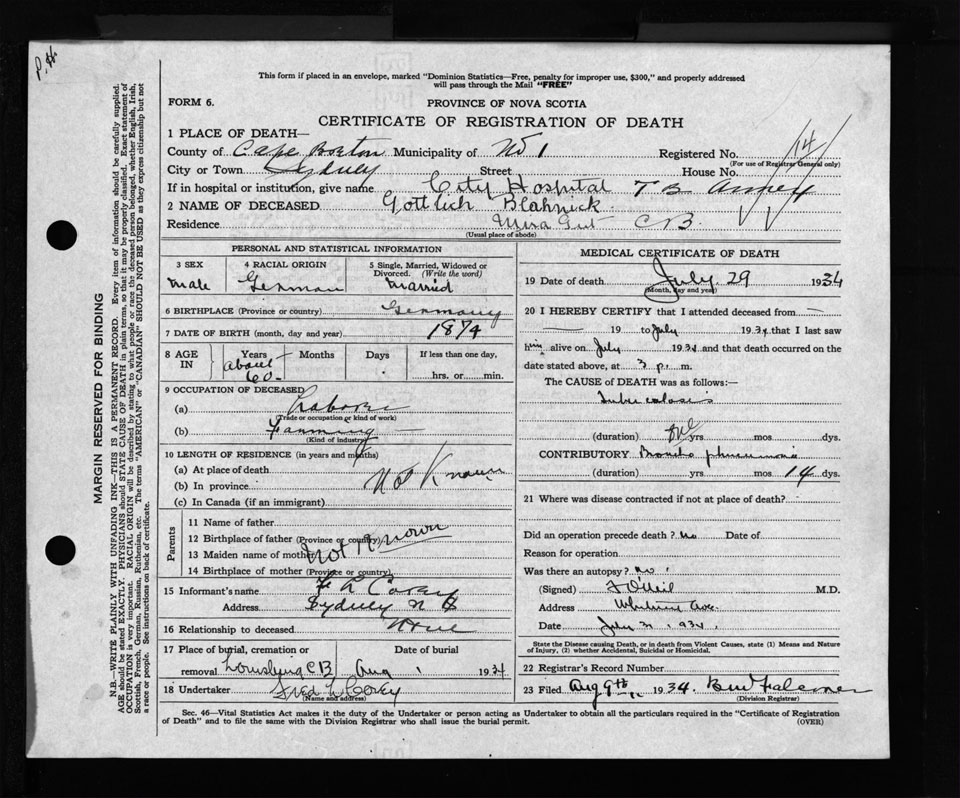 P.H.
This form if placed in an envelope, marked "Dominion Statistics—Free, penalty for improper use, $300," and properly addressed
will pass through the Mail "FREE"
FORM 6.
PROVINCE OF NOVA SCOTIA
CERTIFICATE OF REGISTRATION OF DEATH
1 PLACE OF DEATH—
County of Cape Breton Municipality of No 1 Registered No. 14
(For use of Registrar General only)
City or Town Sydney Street House No.
If in hospital or institution, give name City Hospital T B Annex
2 NAME OF DECEASED Gottlich Blahnick
Residence Mira Gut C B.
(Usual place of abode)
PERSONAL AND STATISTICAL INFORMATION
3 SEX 4 RACIAL ORIGIN 5 Single, Married, Widowed or
Divorced. (Write the word)
Male German Married
6 BIRTHPLACE (Province or country) Germany
7 DATE OF BIRTH (month, day and year) 1874
8 AGE IN Years Months Days If less than one day,
about 60 hrs. or min.
9 OCCUPATION OF DECEASED
(a) Laborer
(Trade or occupation or kind of work)
(b) Farming
(Kind of industry)
10 LENGTH OF RESIDENCE (in years and months)
(a) At place of death
(b) In province Not Known
(c) In Canada (if an immigrant)
Parents
11 Name of father
12 Birthplace of father (Province or country)
Not Known
13 Maiden name of mother
14 Birthplace of mother (Province or country)
15 Informant's name L Corey
Address Sydney N S
16 Relationship to deceased None
17 Place of burial, cremation or Date of burial
removal Louisburg CB Aug 1 1934
18 Undertaker Fred L Corey
(Name and address)
MEDICAL CERTIFICATE OF DEATH
19 Date of death July 29 1934
(Month, day and year)
20 I HEREBY CERTIFY that I attended deceased from —
19 to July 1934 that I last saw
him alive on July 1934 and that death occurred on the
date stated above, at 3 p. m.
The CAUSE of DEATH was as follows:—
Tuberculosis
(duration) one yrs mos dys.
CONTRIBUTORY Broncho pneumonia
(duration) yrs mos 14 dys.
21 Where was disease contracted if not at place of death?
Did an operation precede death? No Date of
Reason for operation
Was there an autopsy? No.
(Signed) O'Neil M.D.
Address Whitney Ave.
Date July 31, 1934
State the Disease causing Death, or in death from Violent Causes, state (1) Means and Nature
of Injury, (2) whether Accidental, Suicidal or Homicidal.
22 Registrar's Record Number
23 Filed Aug 9th 1934.
(Division Registrar)
Sec. 46—Vital Statistics Act makes it the duty of the Undertaker or person acting as Undertaker to obtain all the particulars required in the "Certificate of Registration
of Death" and to file the same with the Division Registrar who shall issue the burial permit. (OVER)
MARGIN RESERVED FOR BINDING
N.B.—WRITE PLAINLY WITH UNFADING INK—THIS IS A PERMANENT RECORD. Every item of information should be carefully supplied.
AGE should be stated EXACTLY. PHYSICIANS should STATE CAUSE OF DEATH in plain terms, so that it may be properly classified. Exact statement of
OCCUPATION is very important. RACIAL ORIGIN will be described by stating to what people or race the deceased person belonged, whether English, Irish,
Scottish, French, German, Russian, Ruthenian, etc. The terms "AMERICAN" or "CANADIAN" SHOULD NOT BE USED as they express citizenship but not
a race or people. See instructions on back of certificate.